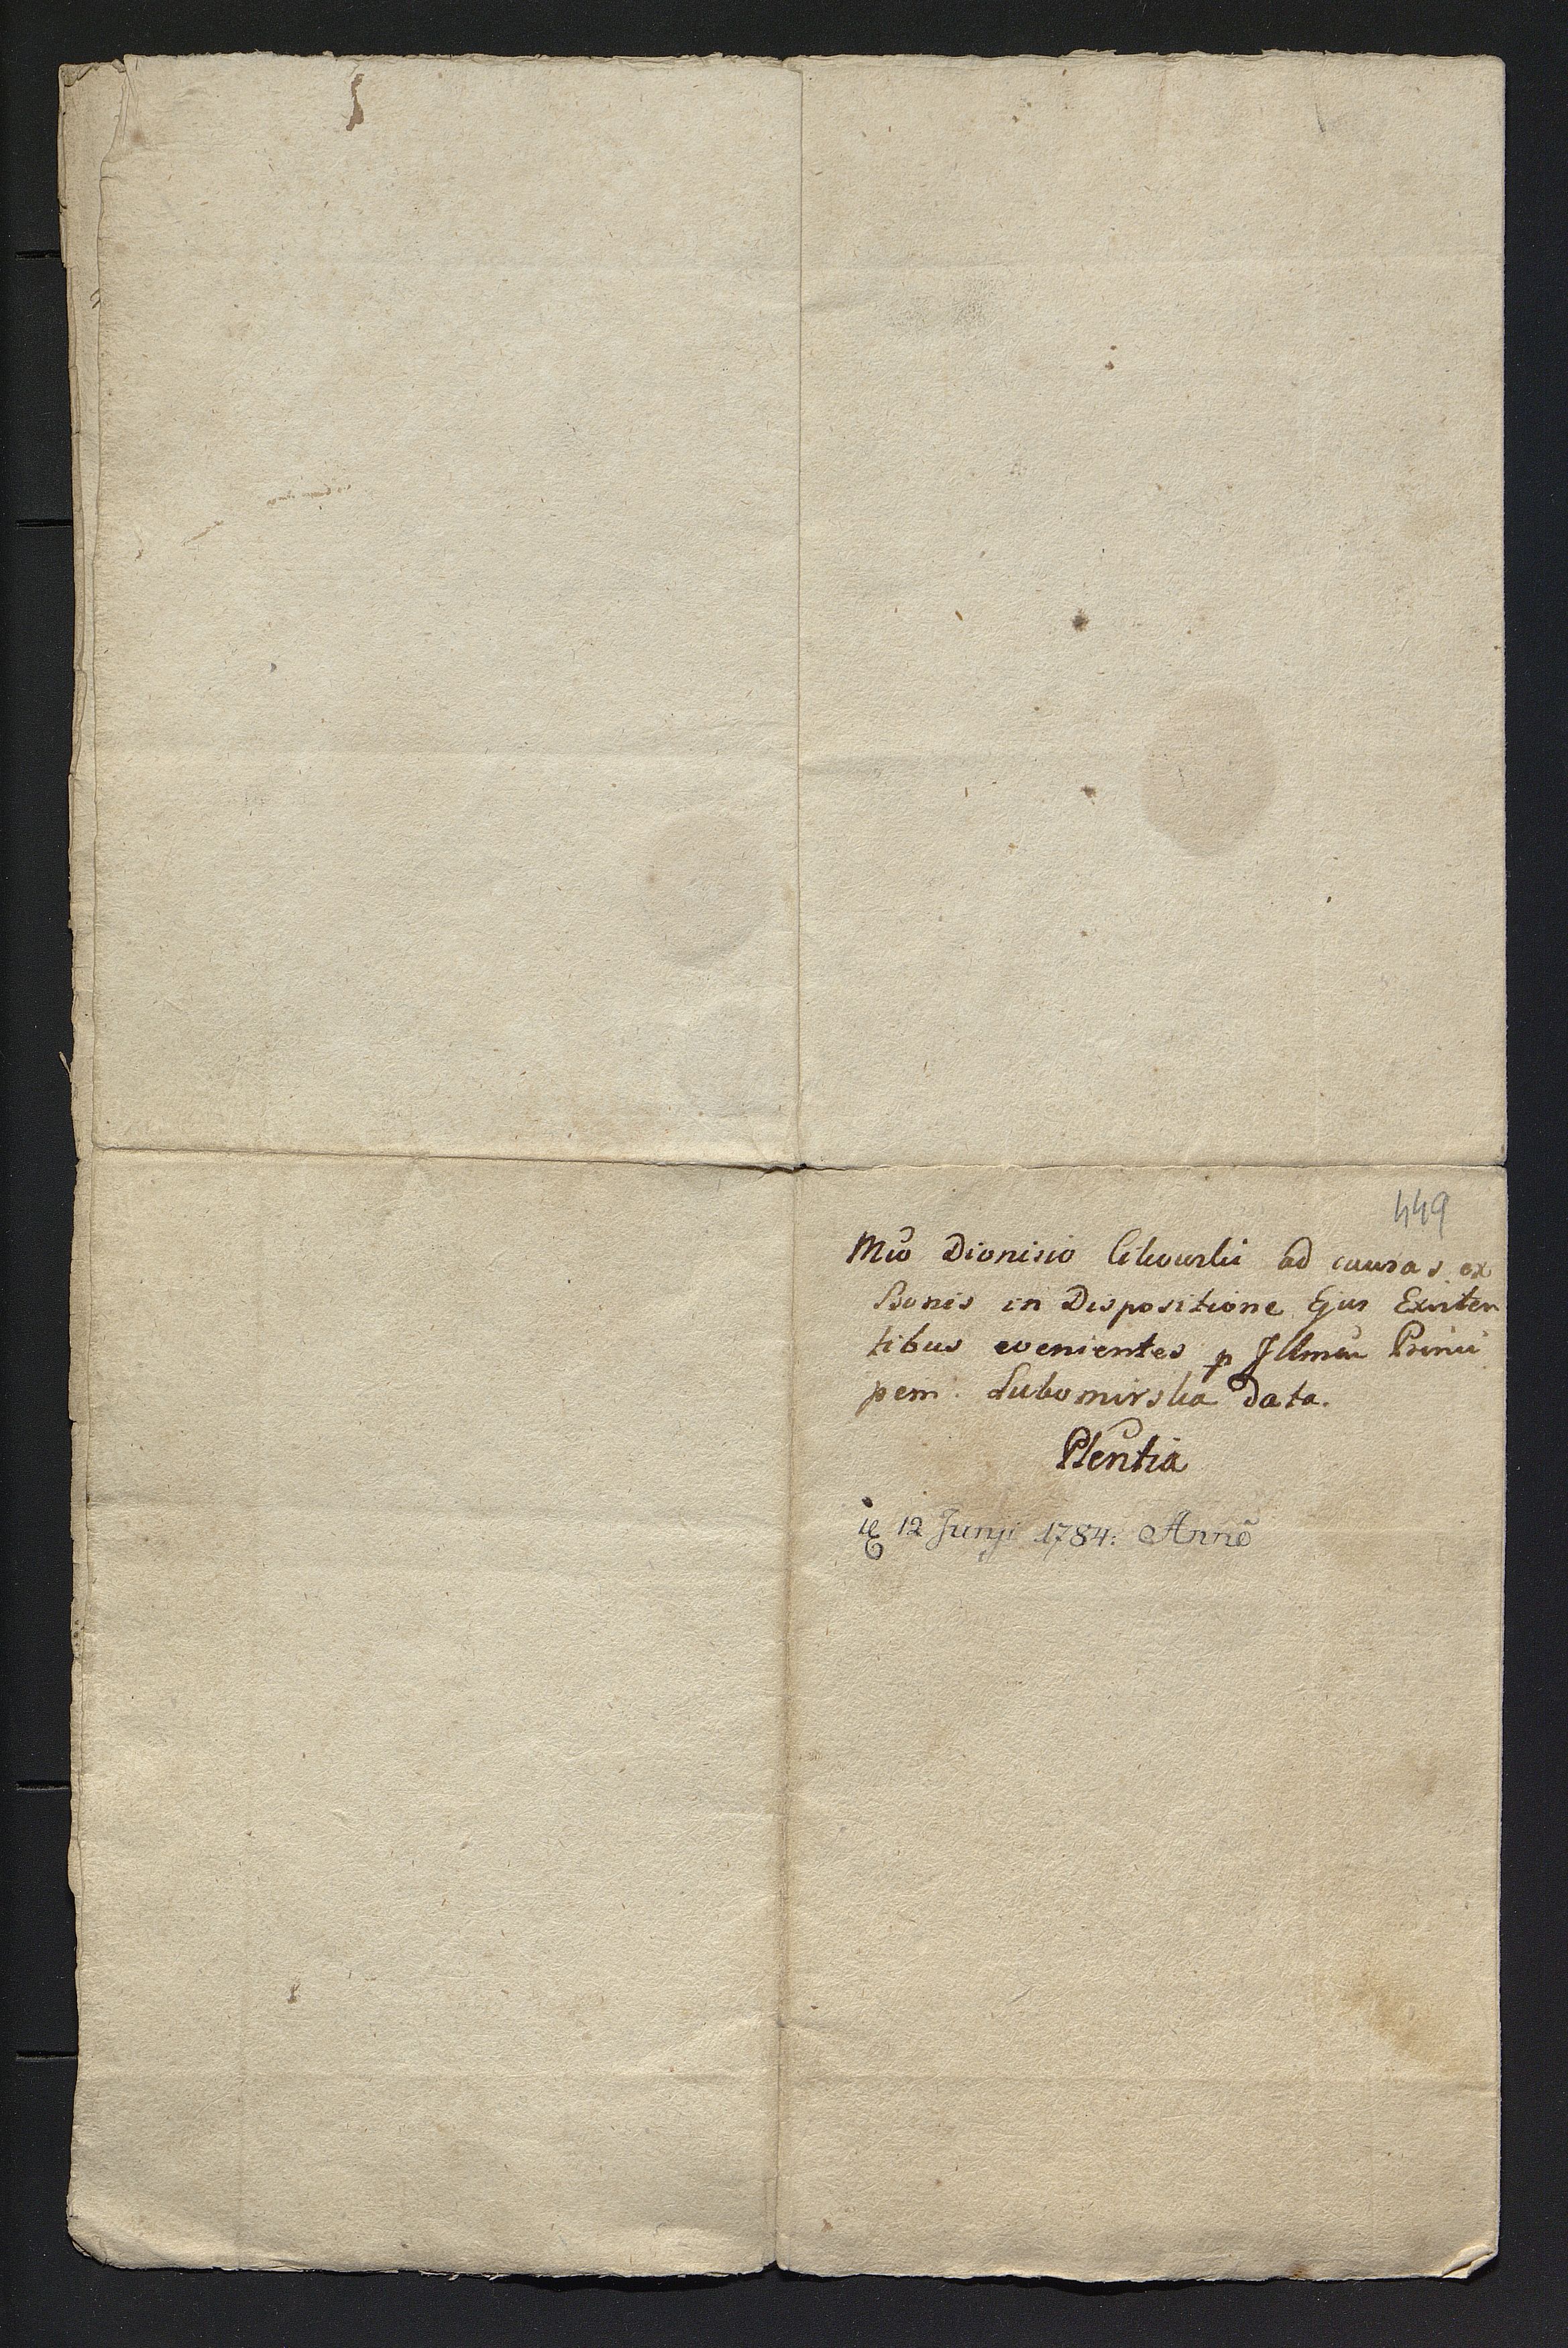 449
Mco Dionisio Cikowski ad causas ex
Bonis in Dispositione Ejus Existen
tibus evenientes p Illmen Princi
pem Lubomirska data.
Plentia
12 Junji 1784. Anno